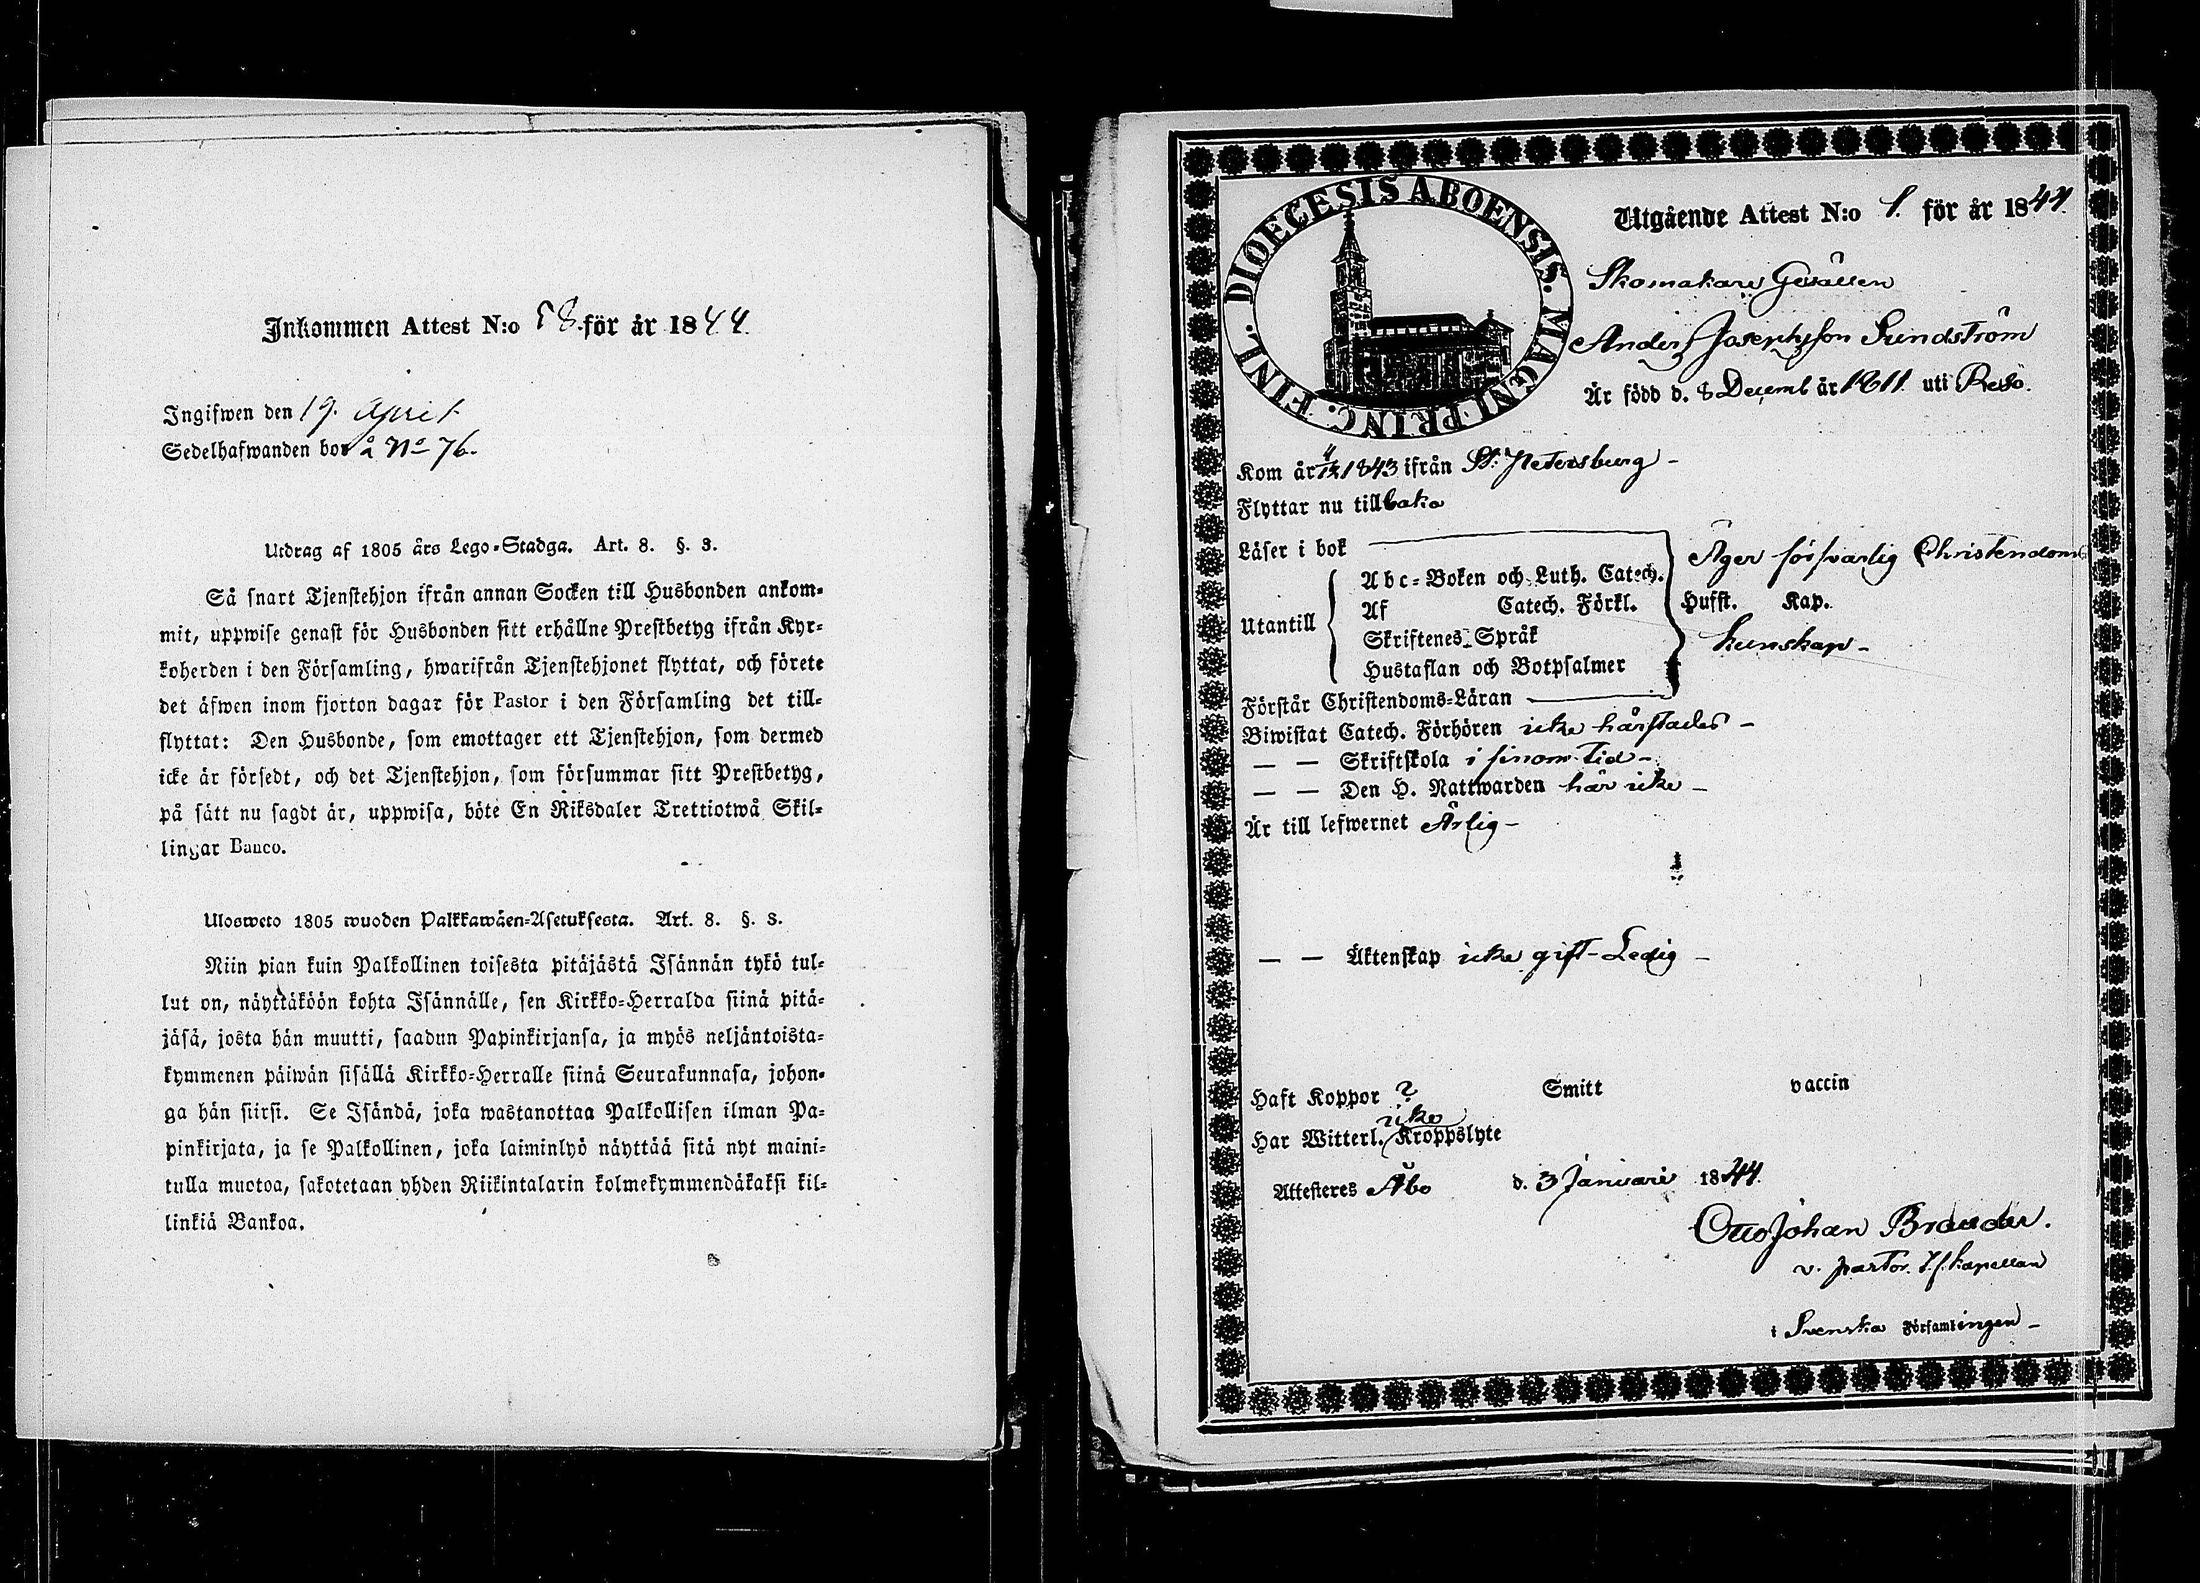 Inkommen Attest N:o 58. för år 1844.
Ingifwen den 19. April
Sedelhafwanden bor å No 76.
Utdrag af 1805 års Lego-Stadga. Art. 8. §. 3.
Så snart Tjenstehjon ifrån annan Socken till Husbonden ankom-
mit, uppwise genast för Husbonden sitt erhållne Prestbetyg ifrån Kyr-
koherden i den Församling, hwarifrån Tjenstehjonet flyttat, och förete
det äfwen inom fjorton dagar för Pastor i den Församling det till-
flyttat: Den Husbonde, som emottager ett Tjenstehjon, som dermed
icke är försedt, och det Tjenstehjon, som försummar sitt Prestbetyg,
på sätt nu sagdt är, uppwisa, böte En Riksdaler Trettiotwå Skil-
lingar Banco.
Ulosweto 1805 wuoden Palkkawäen-Asetuksesta. Art. 8. §. 3.
Niin pian kuin Palkollinen toisesta pitäjästä Isännän tykö tul-
lut on, näyttäköön kohta Isännälle, sen Kirkko-Herralda siinä pitä-
jäsä, josta hän muutti, saadun Papinkirjansa, ja myös neljäntoista-
kymmenen päiwän sisällä Kirkko-Herralle siinä Seurakunnasa, johon-
ga hän siirsi. Se Isändä, joka wastanottaa Palkollisen ilman Pa-
pinkirjata, ja se Palkollinen, joka laiminlyö näyttää sitä nyt maini-
tulla muotoa, sakotetaan yhden Riikintalarin kolmekymmendäkaksi kil-
linkiä Bankoa.
DIOECESIS ABOENSIS. MAGNI PRINC. FINL.
Utgående Attest N:o 1. för år 1844.
Skomakare Gesällen
Anders Josephsson Sundström
Är född d. 8 Decemb år 1811. uti Resö.
Kom år 4/12 1843 ifrån St: Petersburg -
Flyttar nu tillbaka
Läser i bok
Äger försvarlig Christendoms
Utantill
Abc-Boken och Luth. Catech.
Af Catech. Förkl.
Hufst. Kap.
Skriftenes Språk
kunskap -
Hustaflan och Botpsalmer
Förstår Christendoms-Läran
Biwistat Catech. Förhören icke härstädes -
— — Skriftskola i sinom tid -
— — Den H. Nattwarden här icke -
Är till lefwernet Ärlig -
— — Äktenskap icke gift - Ledig -
Haft Koppor ? Smitt vaccin
icke
Har Witterl. Kroppslyte
Attesteres Åbo d. 3 Januari 1844.
Otto Johan Brander.
v. pastor. t. f. kapellan
i Svenska Församlingen -